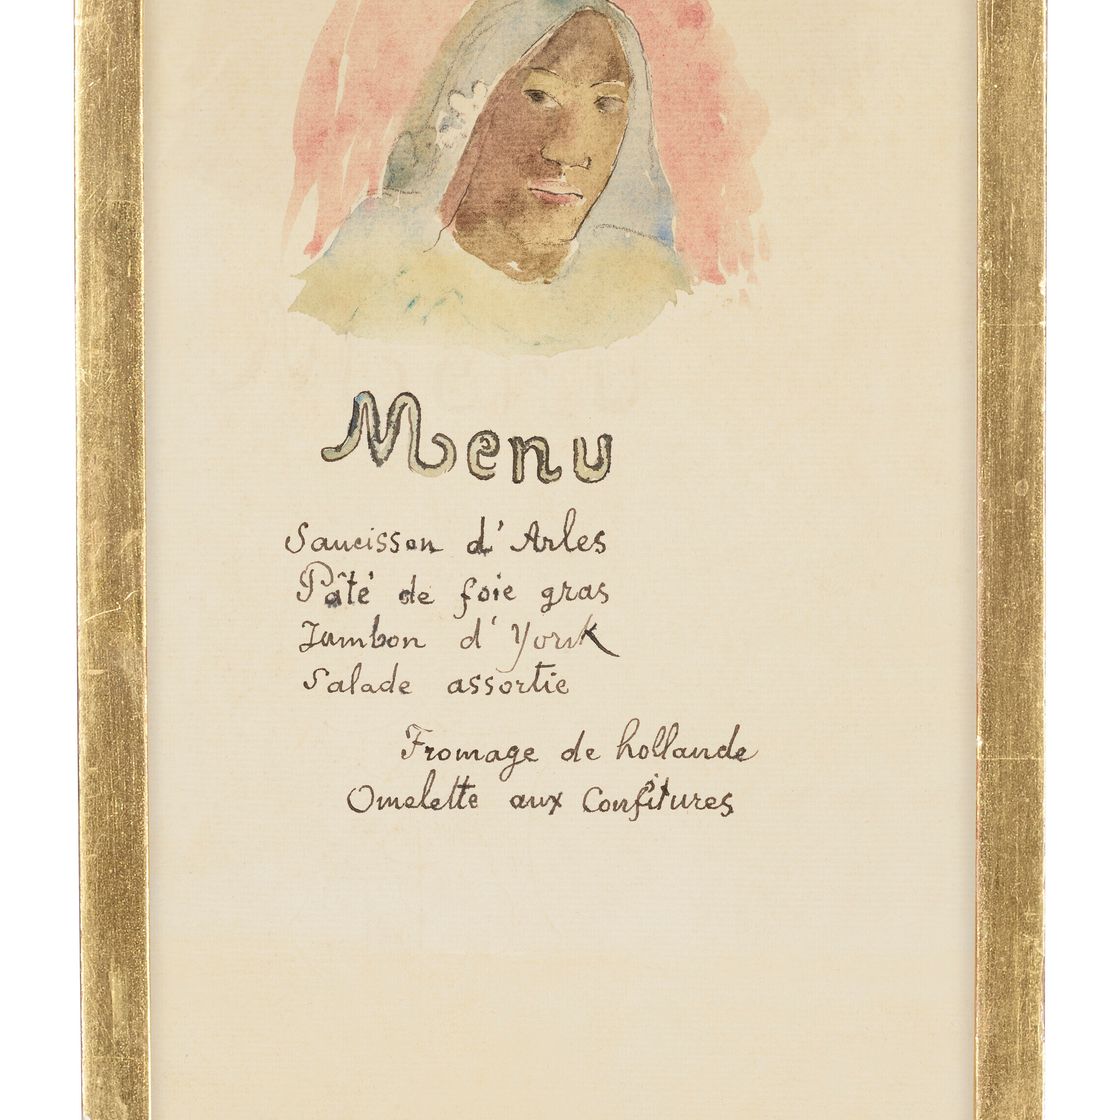 Menu
Saucisson d'Arles
Pâté de foie gras
Jambon d'York
Salade assortie
Fromage de hollande
Omelette aux Confitures